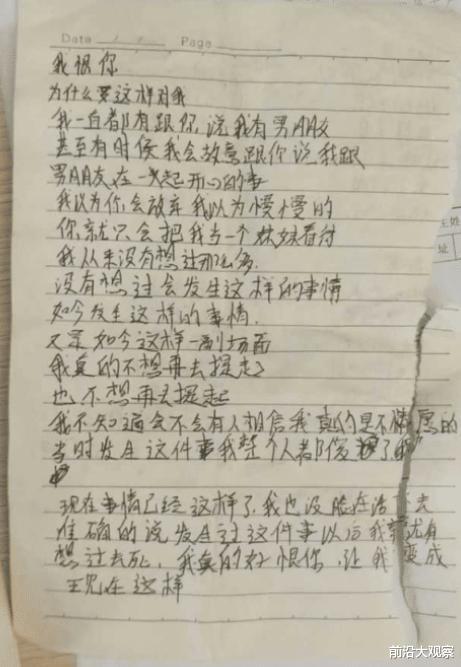 Date / / Page
我恨你
为什么要这样对我
我一直都有跟你说我有男朋友
甚至有时侯我会故意跟你说我跟
男朋友在一起开心的事
我以为你会放弃我以为慢慢的
你就只会把我当一个妹妹看待
我从来没有想过那么多.
没有想过会发生这样的事情
如今发生这样的事情.
又是如今这样一副场面
我真的不想再去提起了
也不想再去提起
我不知道会不会有人相信我真的是不情愿的
当时发生这件事我整个人都傻了
现在事情已经这样了,我也没脸在活下去
准确的说发生过这件事以后我就有
想过去死,我真的好恨你,让我变成
现在这样
姓
址
前沿大观察